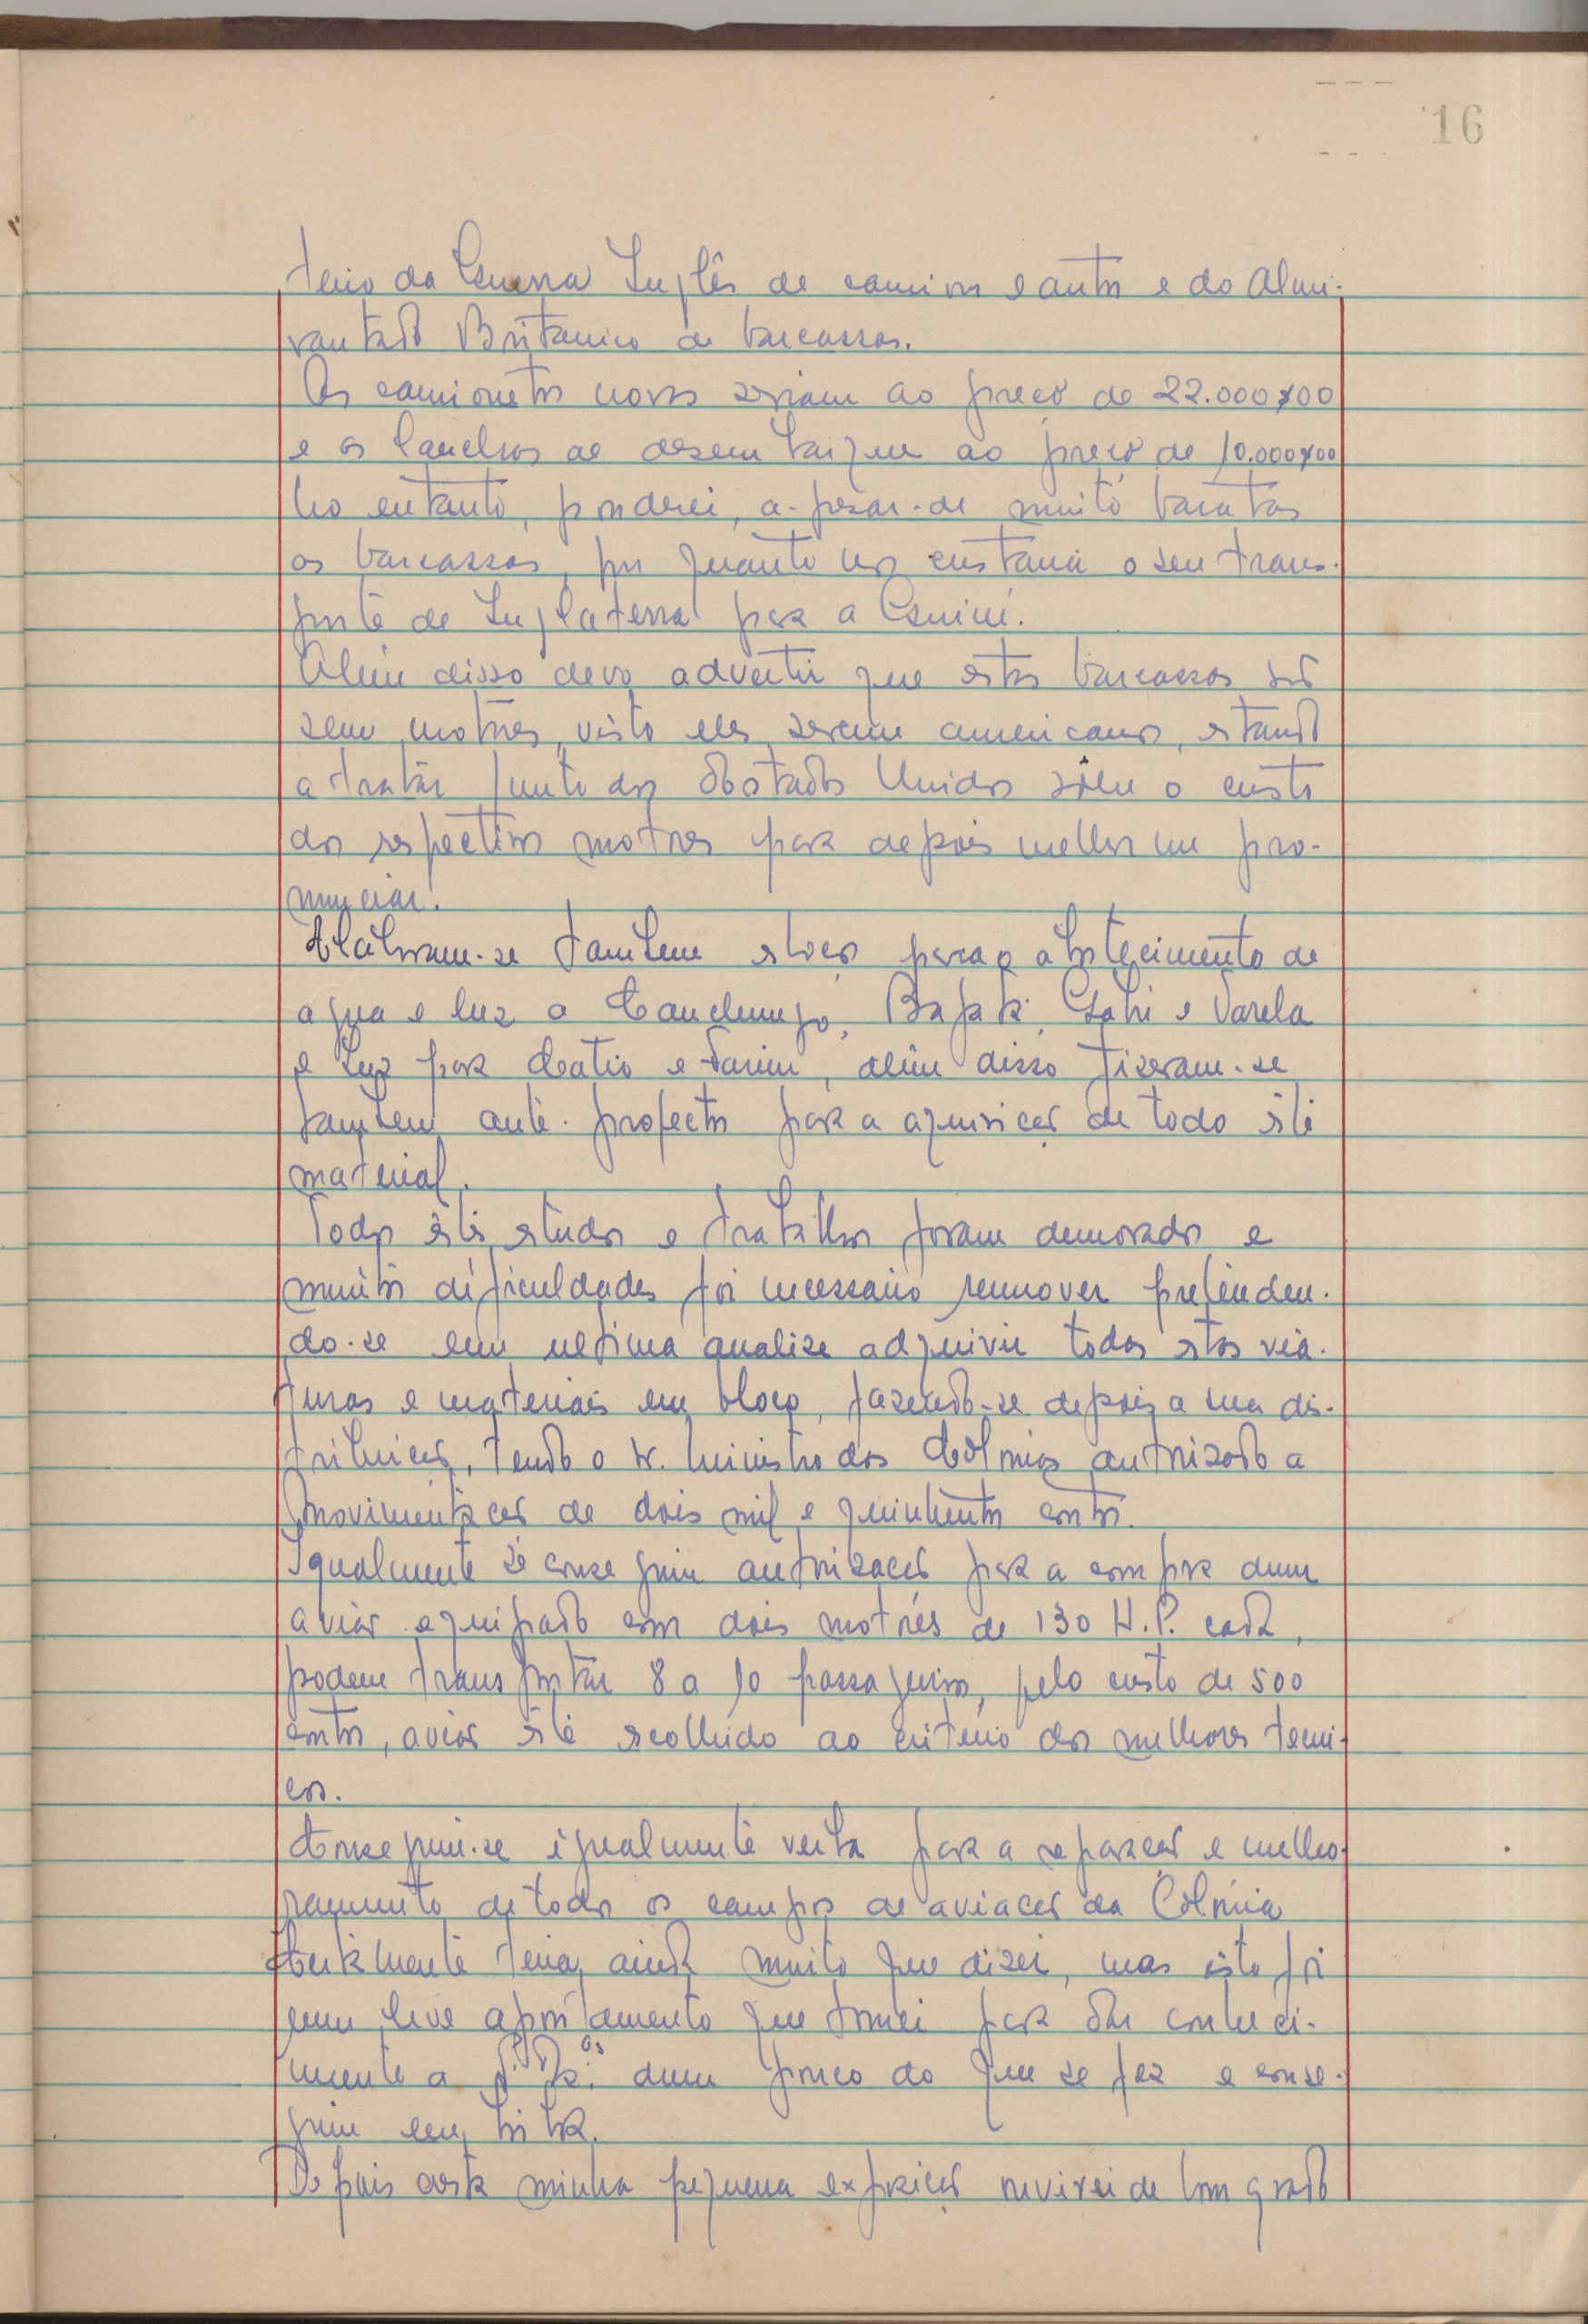 16
terio da Guerra Inglês de camions e autos e do Almi-
rantado Britanico de barcassas.
As camionetas novas seriam ao preço de 22.000$00
e as lanchas de desembarque ao preço de 10.000$00
No entanto, ponderei, a-pesar-de muito baratas
as barcassas, por quanto nos custaria o seu trans-
porte de Inglaterra para a Guiné.
Além disso devo advertir que estas barcassas são
sem motores, visto eles serem americanos, estando
a tratar junto dos Estados Unidos sobre o custo
dos respectivos motores para depois melhor me pro-
nunciar.
Elaboram-se tambem estudos para o abstecimento de
agua e luz a Canchungo, Bafatá, Gabú e Varela
e luz para Catió e Farim, além disso fizeram-se
tambem ante-projectos para a aquisição de todo êste
material.
Todos êstes estudos e trabalhos foram demorados e
muitas dificuldades foi necessario remover pretenden-
do-se em ultima analise adquirir todas estas via-
turas e materiais em bloco, fazendo-se depois a sua dis-
tribuição, tendo o Sr. Ministro das Colonias autorizado a
movimentação de dois mil e quinhentos contos.
Igualmente se conseguiu autorização para a compra dum
avião equipado com dois motores de 130 H.P. cada,
podem transportar 8 a 10 passageiros, pelo custo de 500
contos, avião êste escolhido ao criterio dos melhores tecni-
cos.
Conseguiu-se igualmente verba para a reparação e melho-
ramento de todos os campos de aviação da Colónia
Certamente teria ainda muito que dizer, mas isto foi
um leve apontamento que tomei para dar conheci-
mento a V. Ex.as dum pouco do que se fez e conse-
guiu em Lisboa.
Depois desta minha pequena exposição ouvirei de bom grado